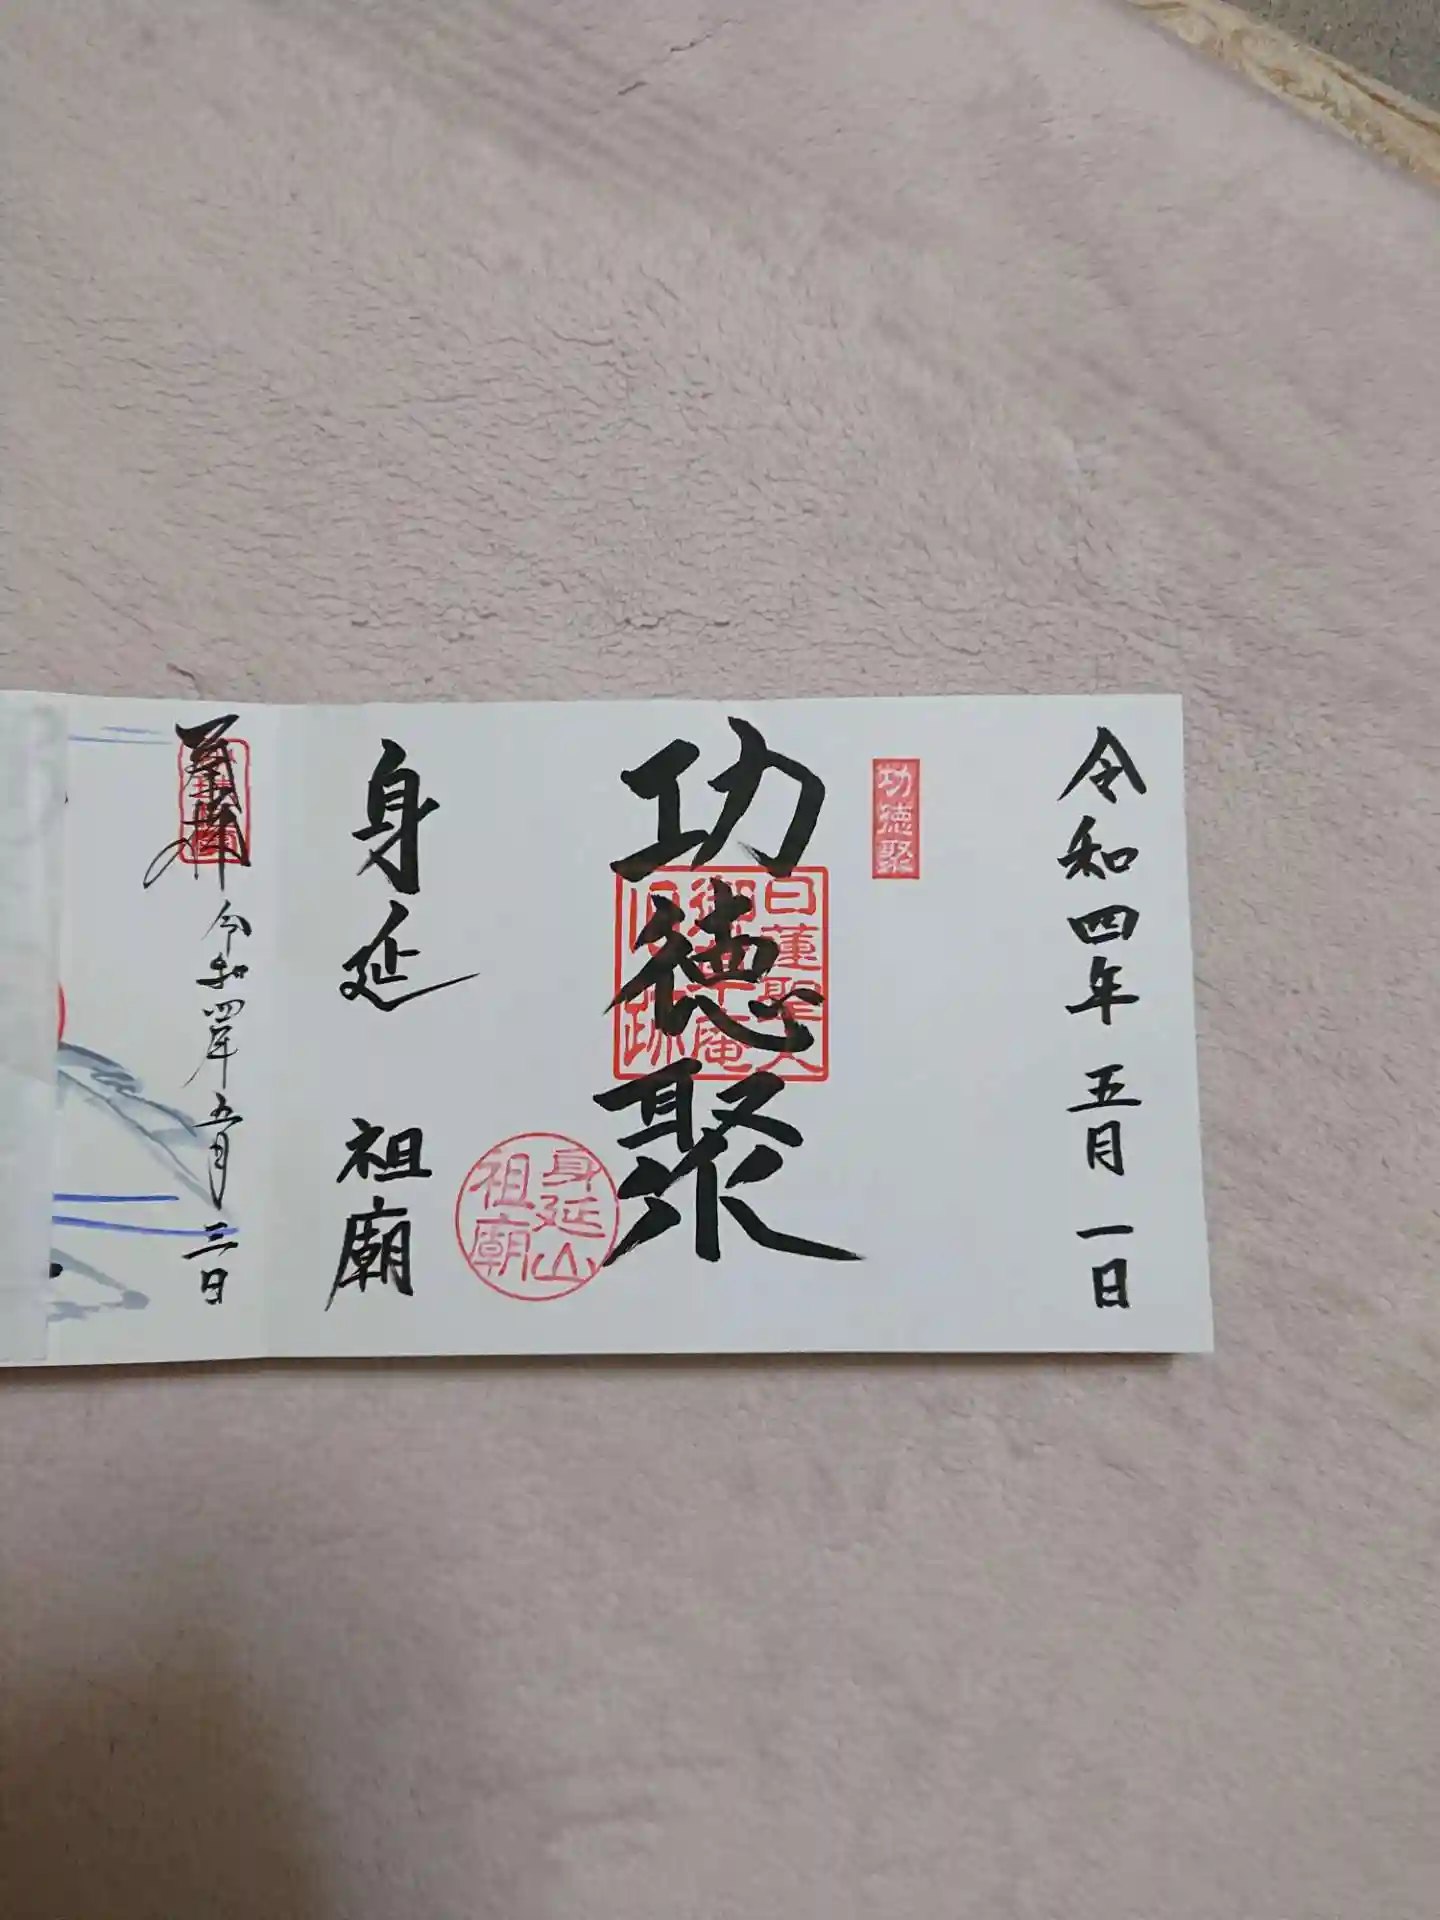 令和四年五月一日
功徳聚
功徳聚
日蓮聖人
御草庵
旧跡
身延山
祖廟
身延 祖廟
奉拝
令和四年五月三日